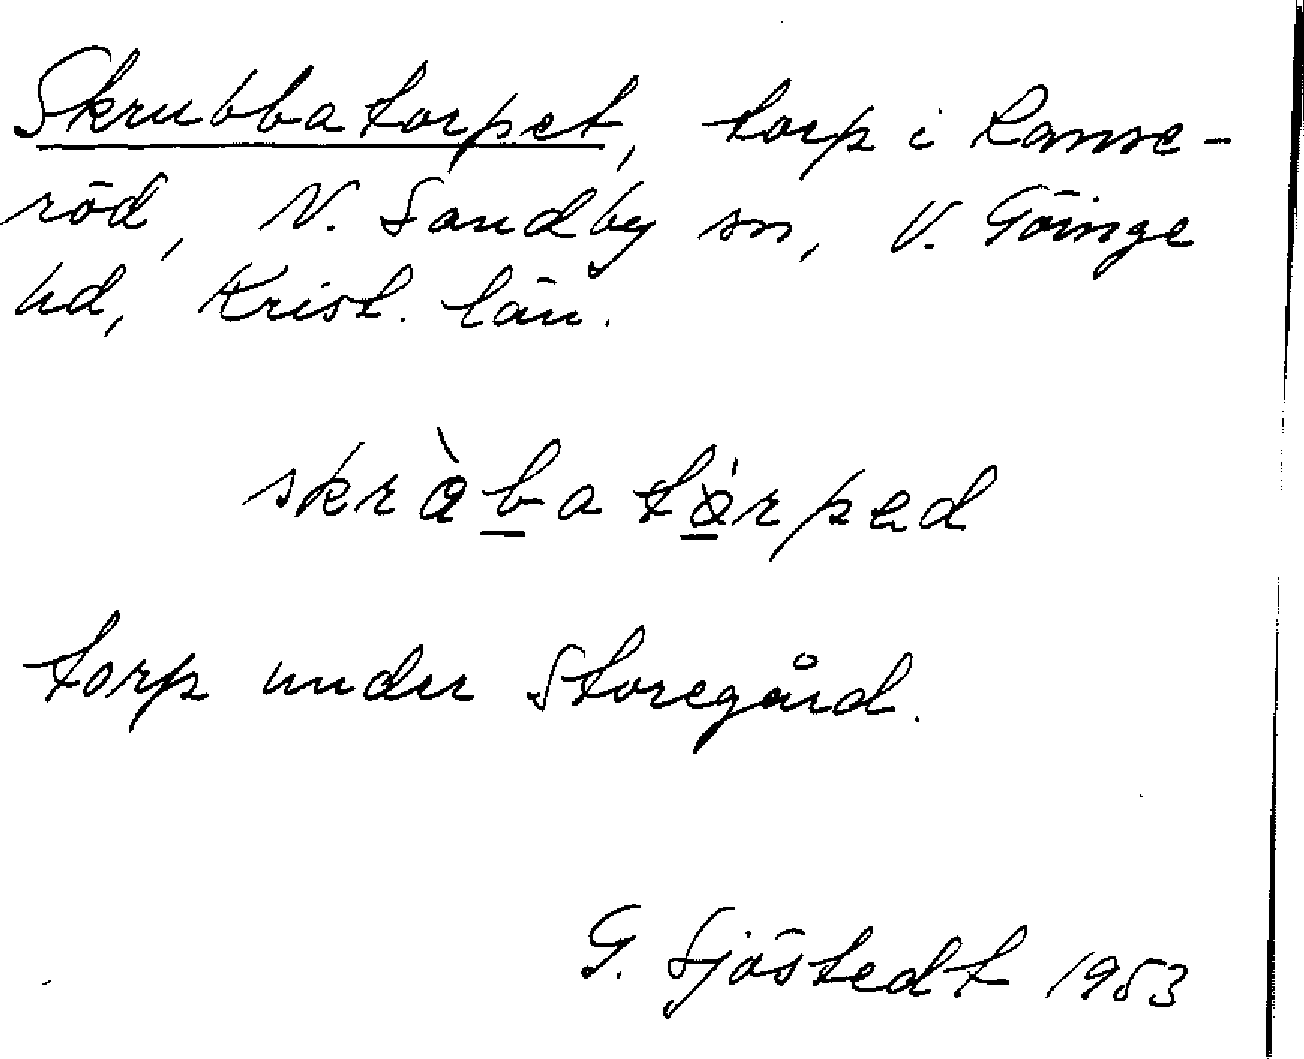 Skrubbatorpet, torp i Ranse-
röd, N. Sandby sn, V. Göinge
hd, Krist. län.
skràba tȯ́rped
torp under Storegård.
G. Sjöstedt 1953